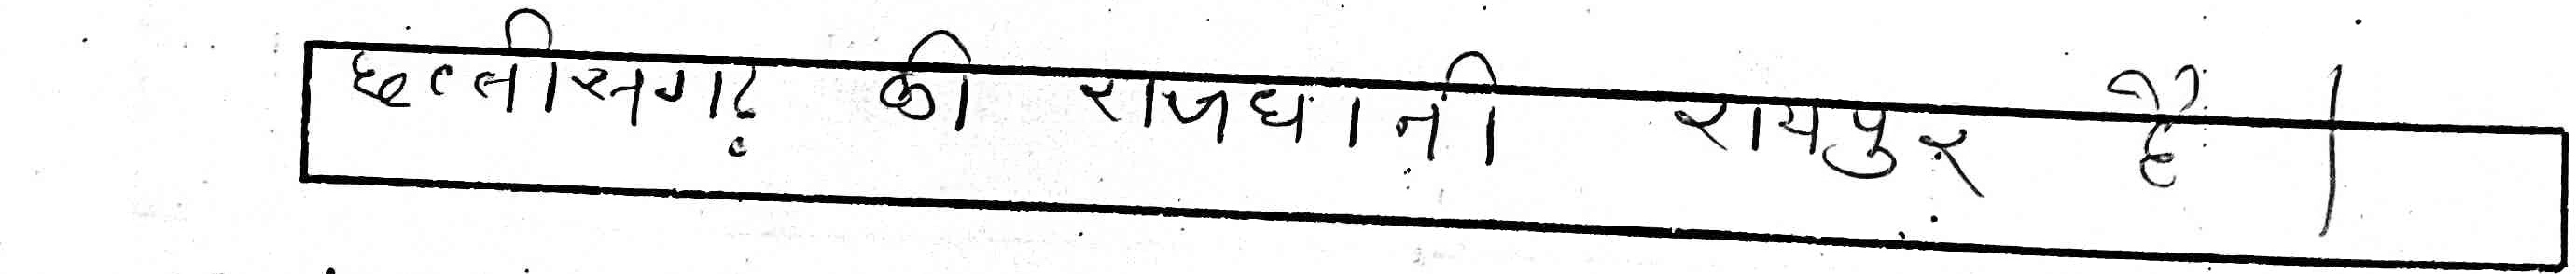 छत्तीसगढ़ की राजधानी रायपुर है।